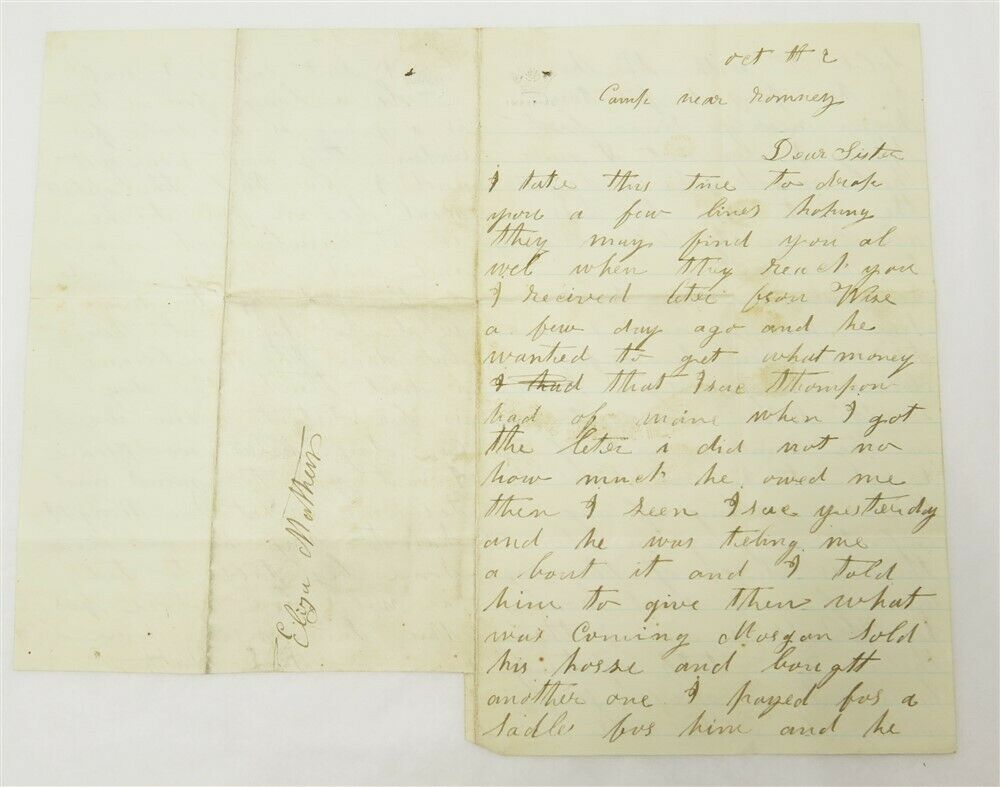 Oct th 2
Camp near Romney
Dear Sister
I take this time to drop
you a few lines hoping
they may find you al
wel when they reach you
I recived leter from Wise
a few day ago and he
wanted to get what money
I had that Isac Thompon
had of mine when I got
the leter i did not no
how much he owed me
then I seen Isac yesterday
and he was teling me
a bout it and I told
him to give them what
was Coming Morgan sold
his horse and bougtt
another one I payed for a
sadle for him and he
Eliza Mathers